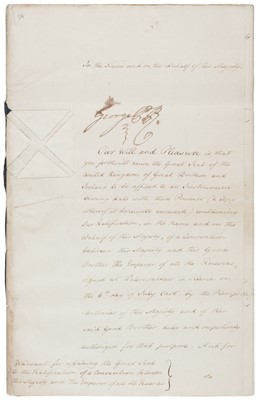 In the Name and on the Behalf of His Majesty.
George P.R.
Our Will and Pleasure is that
you forthwith cause the Great Seal of the
United Kingdom of Great Britain and
Ireland to be affixed to an Instrument
bearing date with these Presents, a Copy
whereof is hereunto annexed, containing
Our Ratification, in the Name and on the
Behalf of His Majesty, of a Convention
between His Majesty and His Good
Brother The Emperor of all the Russias,
signed at
on the 6th day of July last, by the
of His Majesty and of His
said Good Brother, duly and respectively
authorized for that purpose. And for
Warrant for affixing the Great Seal
to the Ratification of a Convention between
His Majesty and the Emperor of all the Russias
so